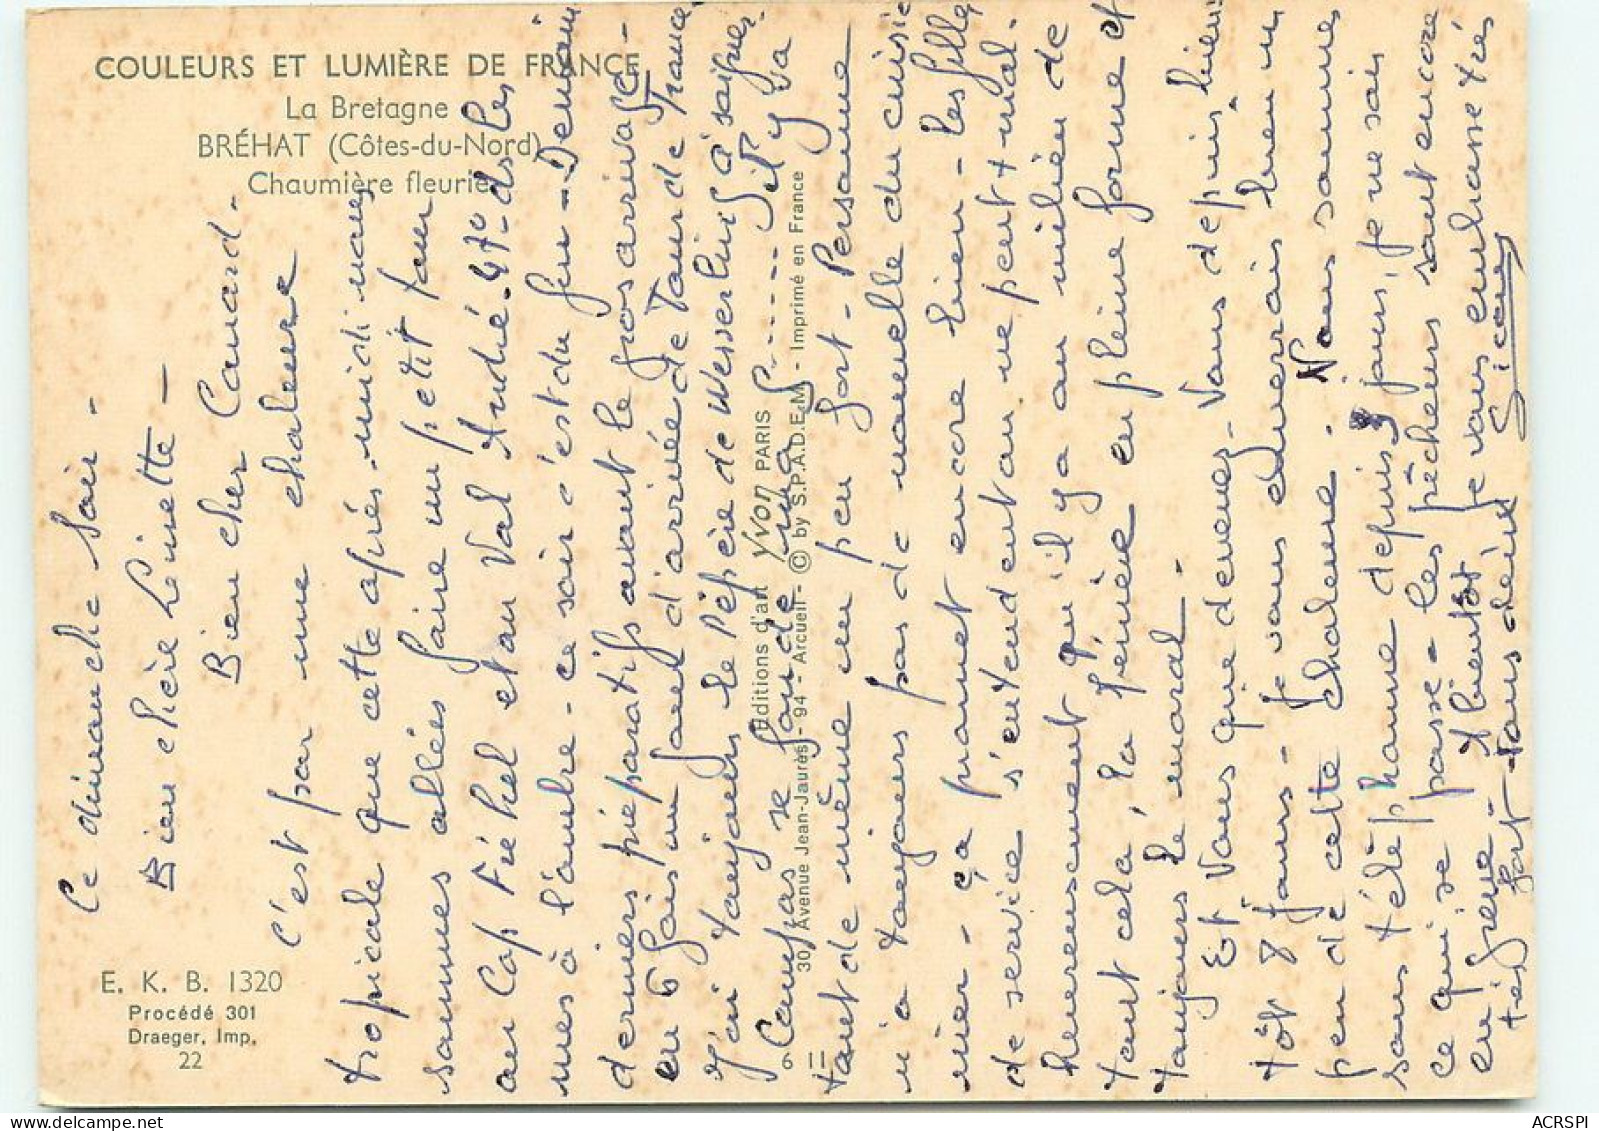 COULEURS ET LUMIÈRE DE FRANCE
La Bretagne
BRÉHAT (Côtes-du-Nord)
Chaumière fleurie
E. K. B. 1320
Procédé 301
Draeger, Imp.
22
Éditions d'art Yvon PARIS
30, Avenue Jean-Jaurès - 94 - Arcueil - © by S.P.A.D.E.M. - Imprimé en France
6 11
Ce dimanche soir -
Bien chère Linette -
Bien cher Canard -
C'est par une chaleur
tropicale que cette après-midi nous
sommes allées faire un petit tour
au Cap Fréhel et au Val André - 41° ds les
mes à l'ombre - ce soir c'est du feu - Demain
derniers préparatifs avant le gros arrivage -
en + fais un jour d'arrivée de Tour de France
j'ai toujours le Pépère de
Campas se
tant de même un peu fort - Personne
n'a toujours pas de nouvelle du cuisi
nier - ça promet encore bien - les filles
de service s'entendent on ne peut + mal -
heureusement qu'il y a au milieu de
tout cela, la Fernée en pleine forme et
toujours le moral -
Et Vous que devenez-Vous depuis bien
tôt 8 jours - Je vous enverrais bien un
peu de cette chaleur - Nous sommes
sans téléphone depuis 3 jours, je ne sais
ce qui se passe - les pêcheurs sont encore
en grève - A bientôt je vous embrasse très
très fort tous deux
ACRSPI